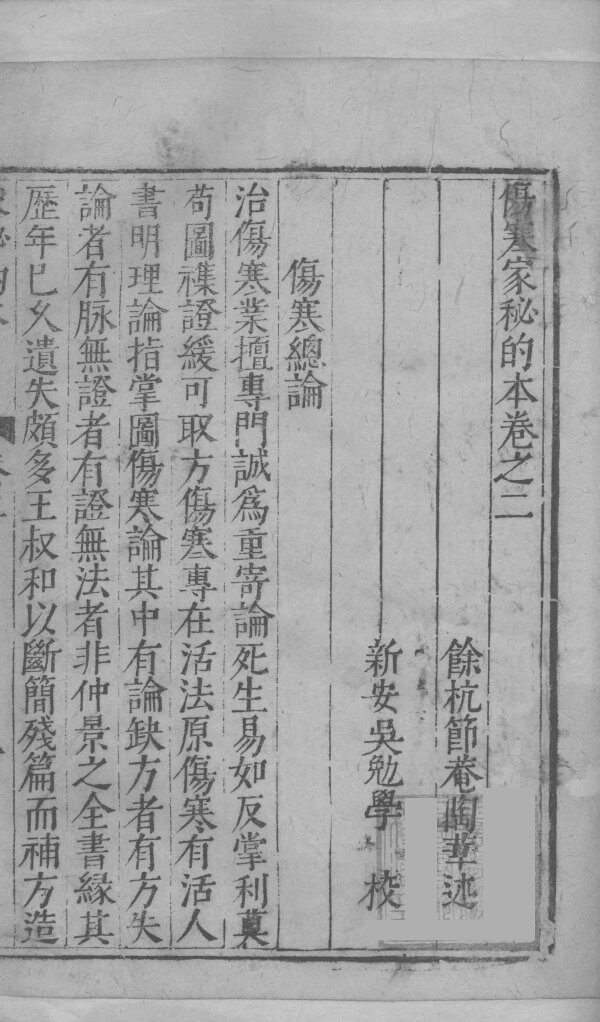 傷寒家秘的本卷之二
餘杭節菴陶華述
新安吳勉學 校
傷寒總論
治傷寒業擅專門誠爲重寄論死生易如反掌利奠
苟圖襍證緩可取方傷寒專在活法原傷寒有活人
書明理論指掌圖傷寒論其中有論缺方者有方失
論者有脉無證者有證無法者非仲景之全書緣其
歷年已久遺失頗多王叔和以斷簡殘篇而補方造